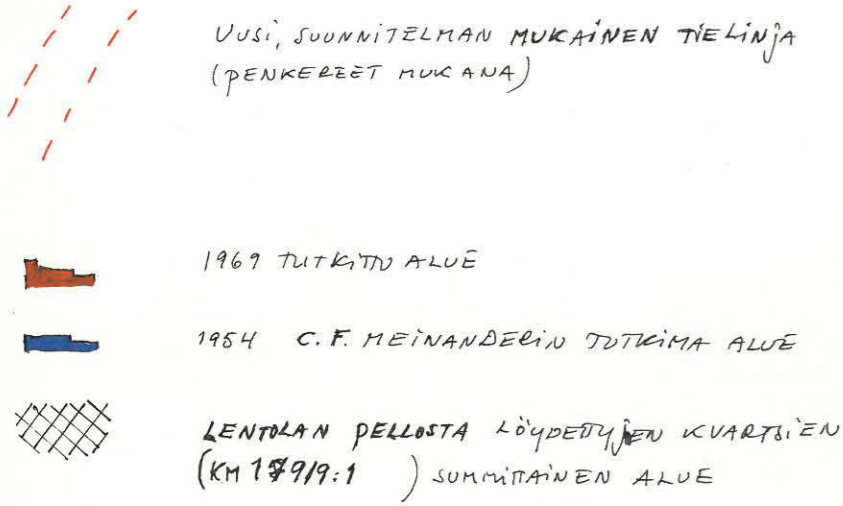 UUSI, SUUNNITELMAN MUKAINEN TIELINJA
(PENKEREET MUKANA)
1969 TUTKITTU ALUE
1954 C.F. MEINANDERIN TUTKIMA ALUE
LENTOLAN PELLOSTA LÖYDETTYJEN KVARTSIEN
(KM 17919:1 ) SUMMITTAINEN ALUE